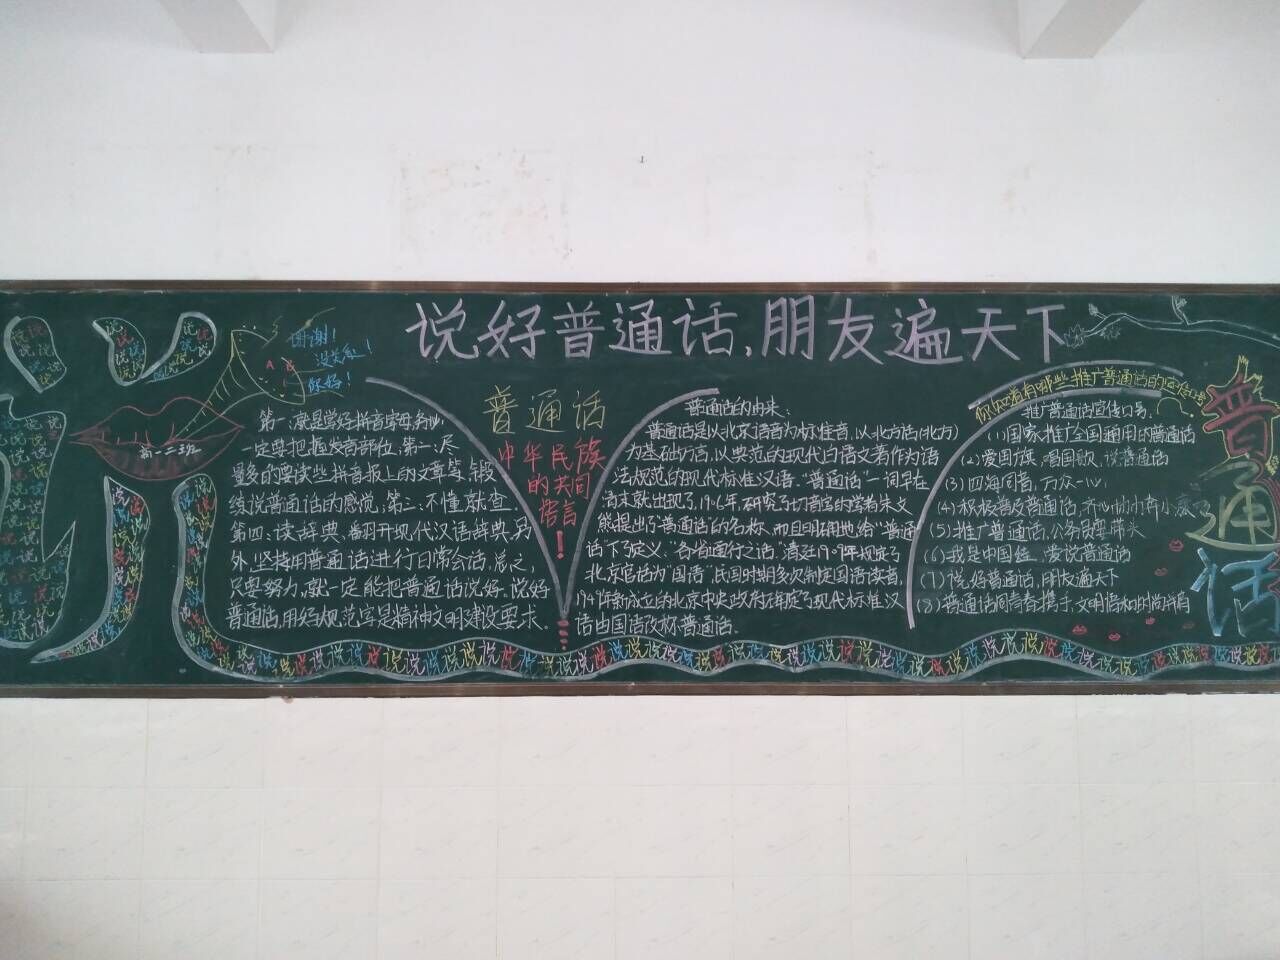 说好普通话,朋友遍天下
谢谢!
没关系!
你好!
普通话
中华民族
的共同
语言
!
第一,就是学好拼音字母,务必
一定要把握发音部位,第二、尽
量多的要读些拼音报上的文章等,锻
练说普通话的感觉,第三、不懂就查.
第四、读辞典、翻开现代汉语辞典,另
外,坚持用普通话进行日常会话,总之,
只要努力,就一定能把普通话说好.说好
普通话,用好规范字是精神文明建设要求.
普通话的由来:
普通话是以北京语音为标准音,以北方话(北方)
为基础方言,以典范的现代白话文著作为语
法规范的现代标准汉语."普通话"一词早在
清末就出现了,1906年,研究了切音字的学者朱文
熊提出了"普通话"的名称,而且明确地给"普通
话"下了定义:"各省通行之话."清廷1909年规定了
北京官话为"国语",民国时期多次制定国语读音,
1949年新成立的北京中央政府确定了现代标准汉
语由国语改称普通话.
你知道有哪些推广普通话的宣传口号
推广普通话宣传口号.
(1)国家推广全国通用的普通话
(2)爱国旗,唱国歌,说普通话
(3)四海同音,万众一心.
(4)积极普及普通话,齐心协力奔小康
(5)推广普通话,公务员要带头
(6)我是中国娃,爱说普通话
(7)说好普通话,朋友遍天下
(8)普通话同青春携手,文明语和时尚并肩
普
通
话
说说说说说说说说说说说说说说说说说说说说说说说说说说说说说说说说